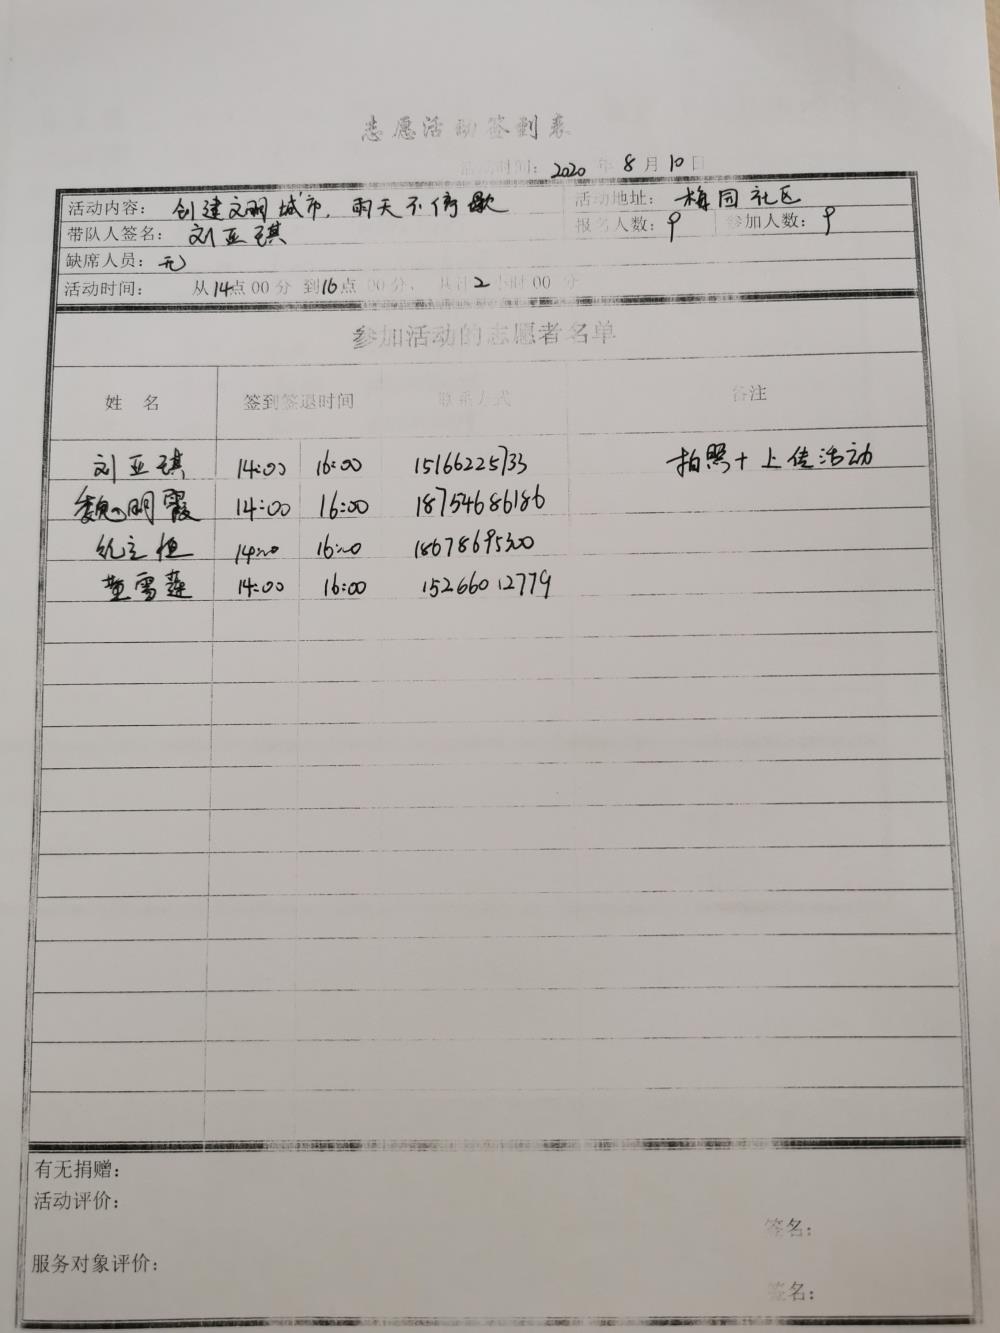 志愿活动签到表
活动时间: 2020 年 8 月 10 日
活动内容: 创建文明城市,雨天不停歇 活动地址: 梅园社区
带队人签名: 刘亚琪 报名人数: 9 参加人数: 9
缺席人员: 无
活动时间: 从14点 00 分 到16点 00 分, 共计2小时 00 分
参加活动的志愿者名单
姓 名 签到签退时间 联系方式 备注
刘亚琪 14:00 16:00 15166225733 拍照+上传活动
魏明霞 14:00 16:00 18754686186
14:00 16:00
董雪莲 14:00 16:00 15266012779
有无捐赠:
活动评价:
签名:
服务对象评价:
签名: